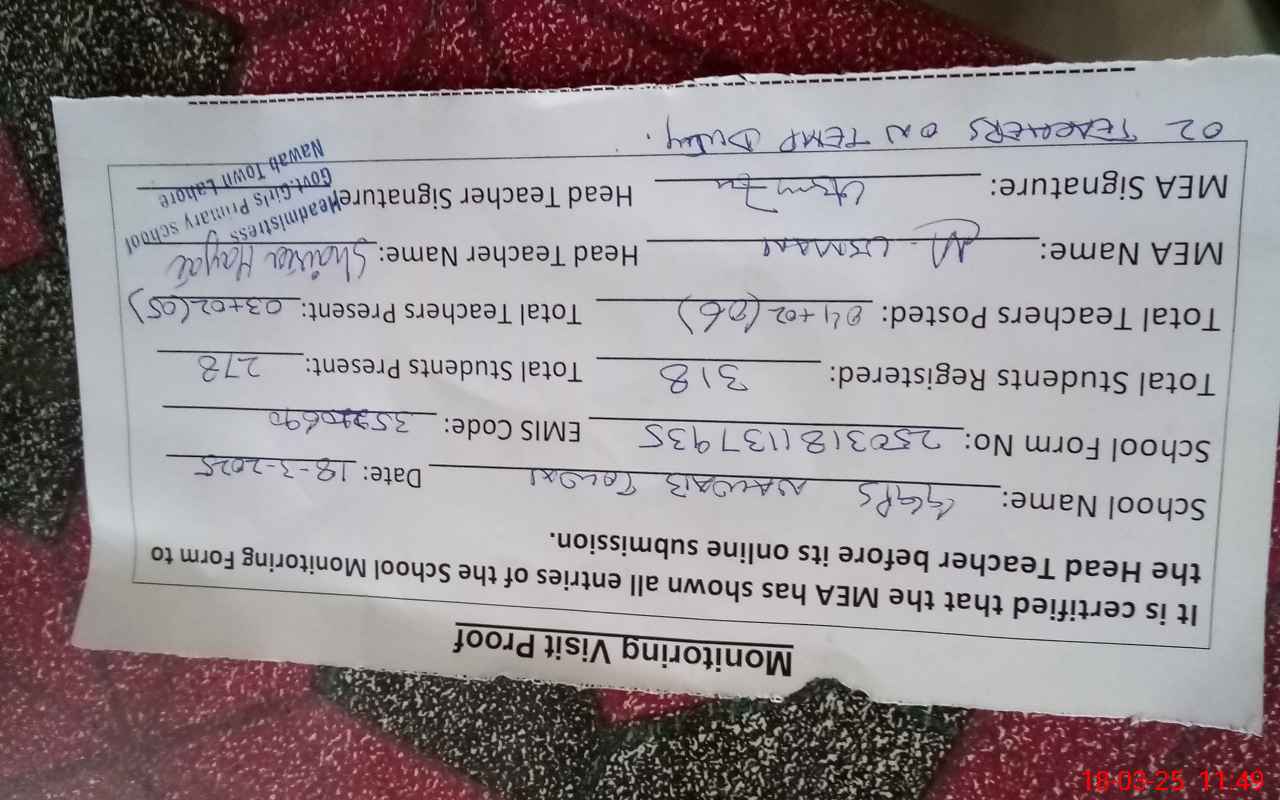 Monitoring Visit Proof
It is certified that the MEA has shown all entries of the School Monitoring Form to
the Head Teacher before its online submission.
School Name: GGPS NAWAB TOWN Date: 18-3-2025
School Form No: 2503181137935 EMIS Code: 690
Total Students Registered: 318 Total Students Present: 278
Total Teachers Posted: 04+02(06) Total Teachers Present: 03+02(05)
MEA Name: M. USMAN Head Teacher Name: Shaista Hayat
MEA Signature: Head Teacher Signature
Headmistress
Govt.Girls Primary school
Nawab Town Lahore
02 TEACHERS ON TEMP Duty.
18-03-25 11:49